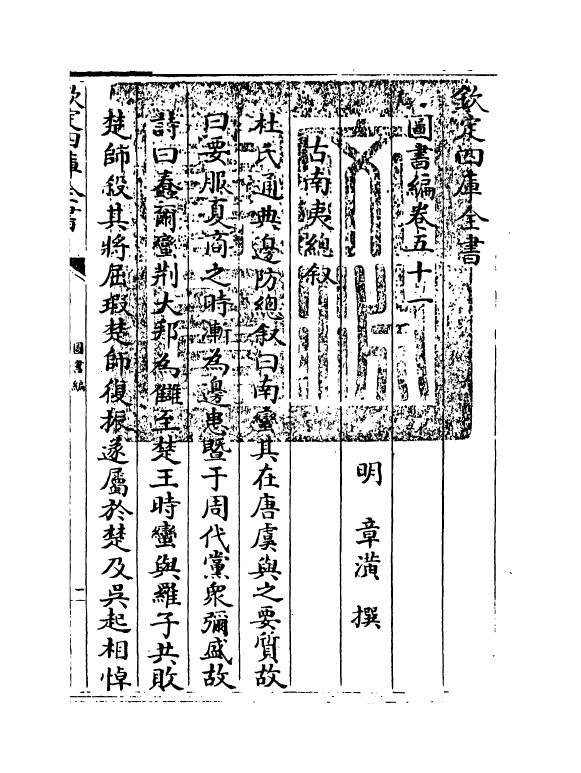 欽定四庫全書
圖書編卷五十一
明 章潢 撰
古南夷總叙
杜氏通典邊防總叙曰南蠻其在唐虞與之要質故
曰要服夏商之時漸為邊患暨于周代黨衆彌盛故
詩曰蠢爾蠻荆大邦為讎至楚王時蠻與羅子共敗
楚師殺其將屈瑕楚師復振遂屬於楚及吳起相悼
欽定四庫全書
圖書編